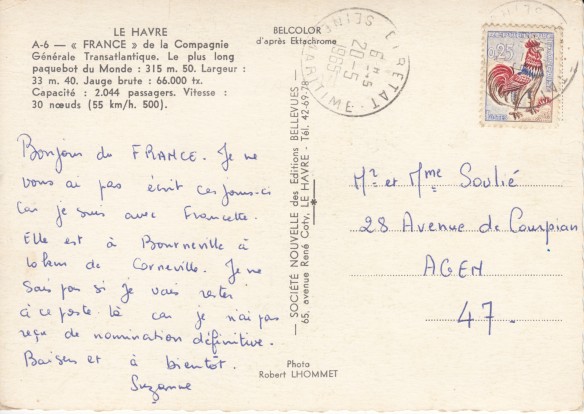 LE HAVRE
A-6 — « FRANCE » de la Compagnie
Générale Transatlantique. Le plus long
paquebot du Monde : 315 m. 50. Largeur :
33 m. 40. Jauge brute : 66.000 tx.
Capacité : 2.044 passagers. Vitesse :
30 nœuds (55 km/h. 500).
BELCOLOR
d'après Ektachrome
Bonjour du FRANCE. Je ne
vous ai pas écrit ces jours-ci
car je suis avec Francette.
Elle est à Bourneville à
10 km de Corneville. Je ne
sais pas si je vais rester
à ce poste là car je n'ai pas
reçu de nomination définitive.
Baisers et à bientôt.
Suzanne
— SOCIÉTÉ NOUVELLE des Editions BELLEVUES —
65, avenue René Coty, LE HAVRE - Tél. 42-69-78
Photo
Robert LHOMMET
ETRETAT
SEINE MARITIME
20-5
1965
0,25
Mr et Mme Soulié
28 Avenue de Courpian
AGEN
47.